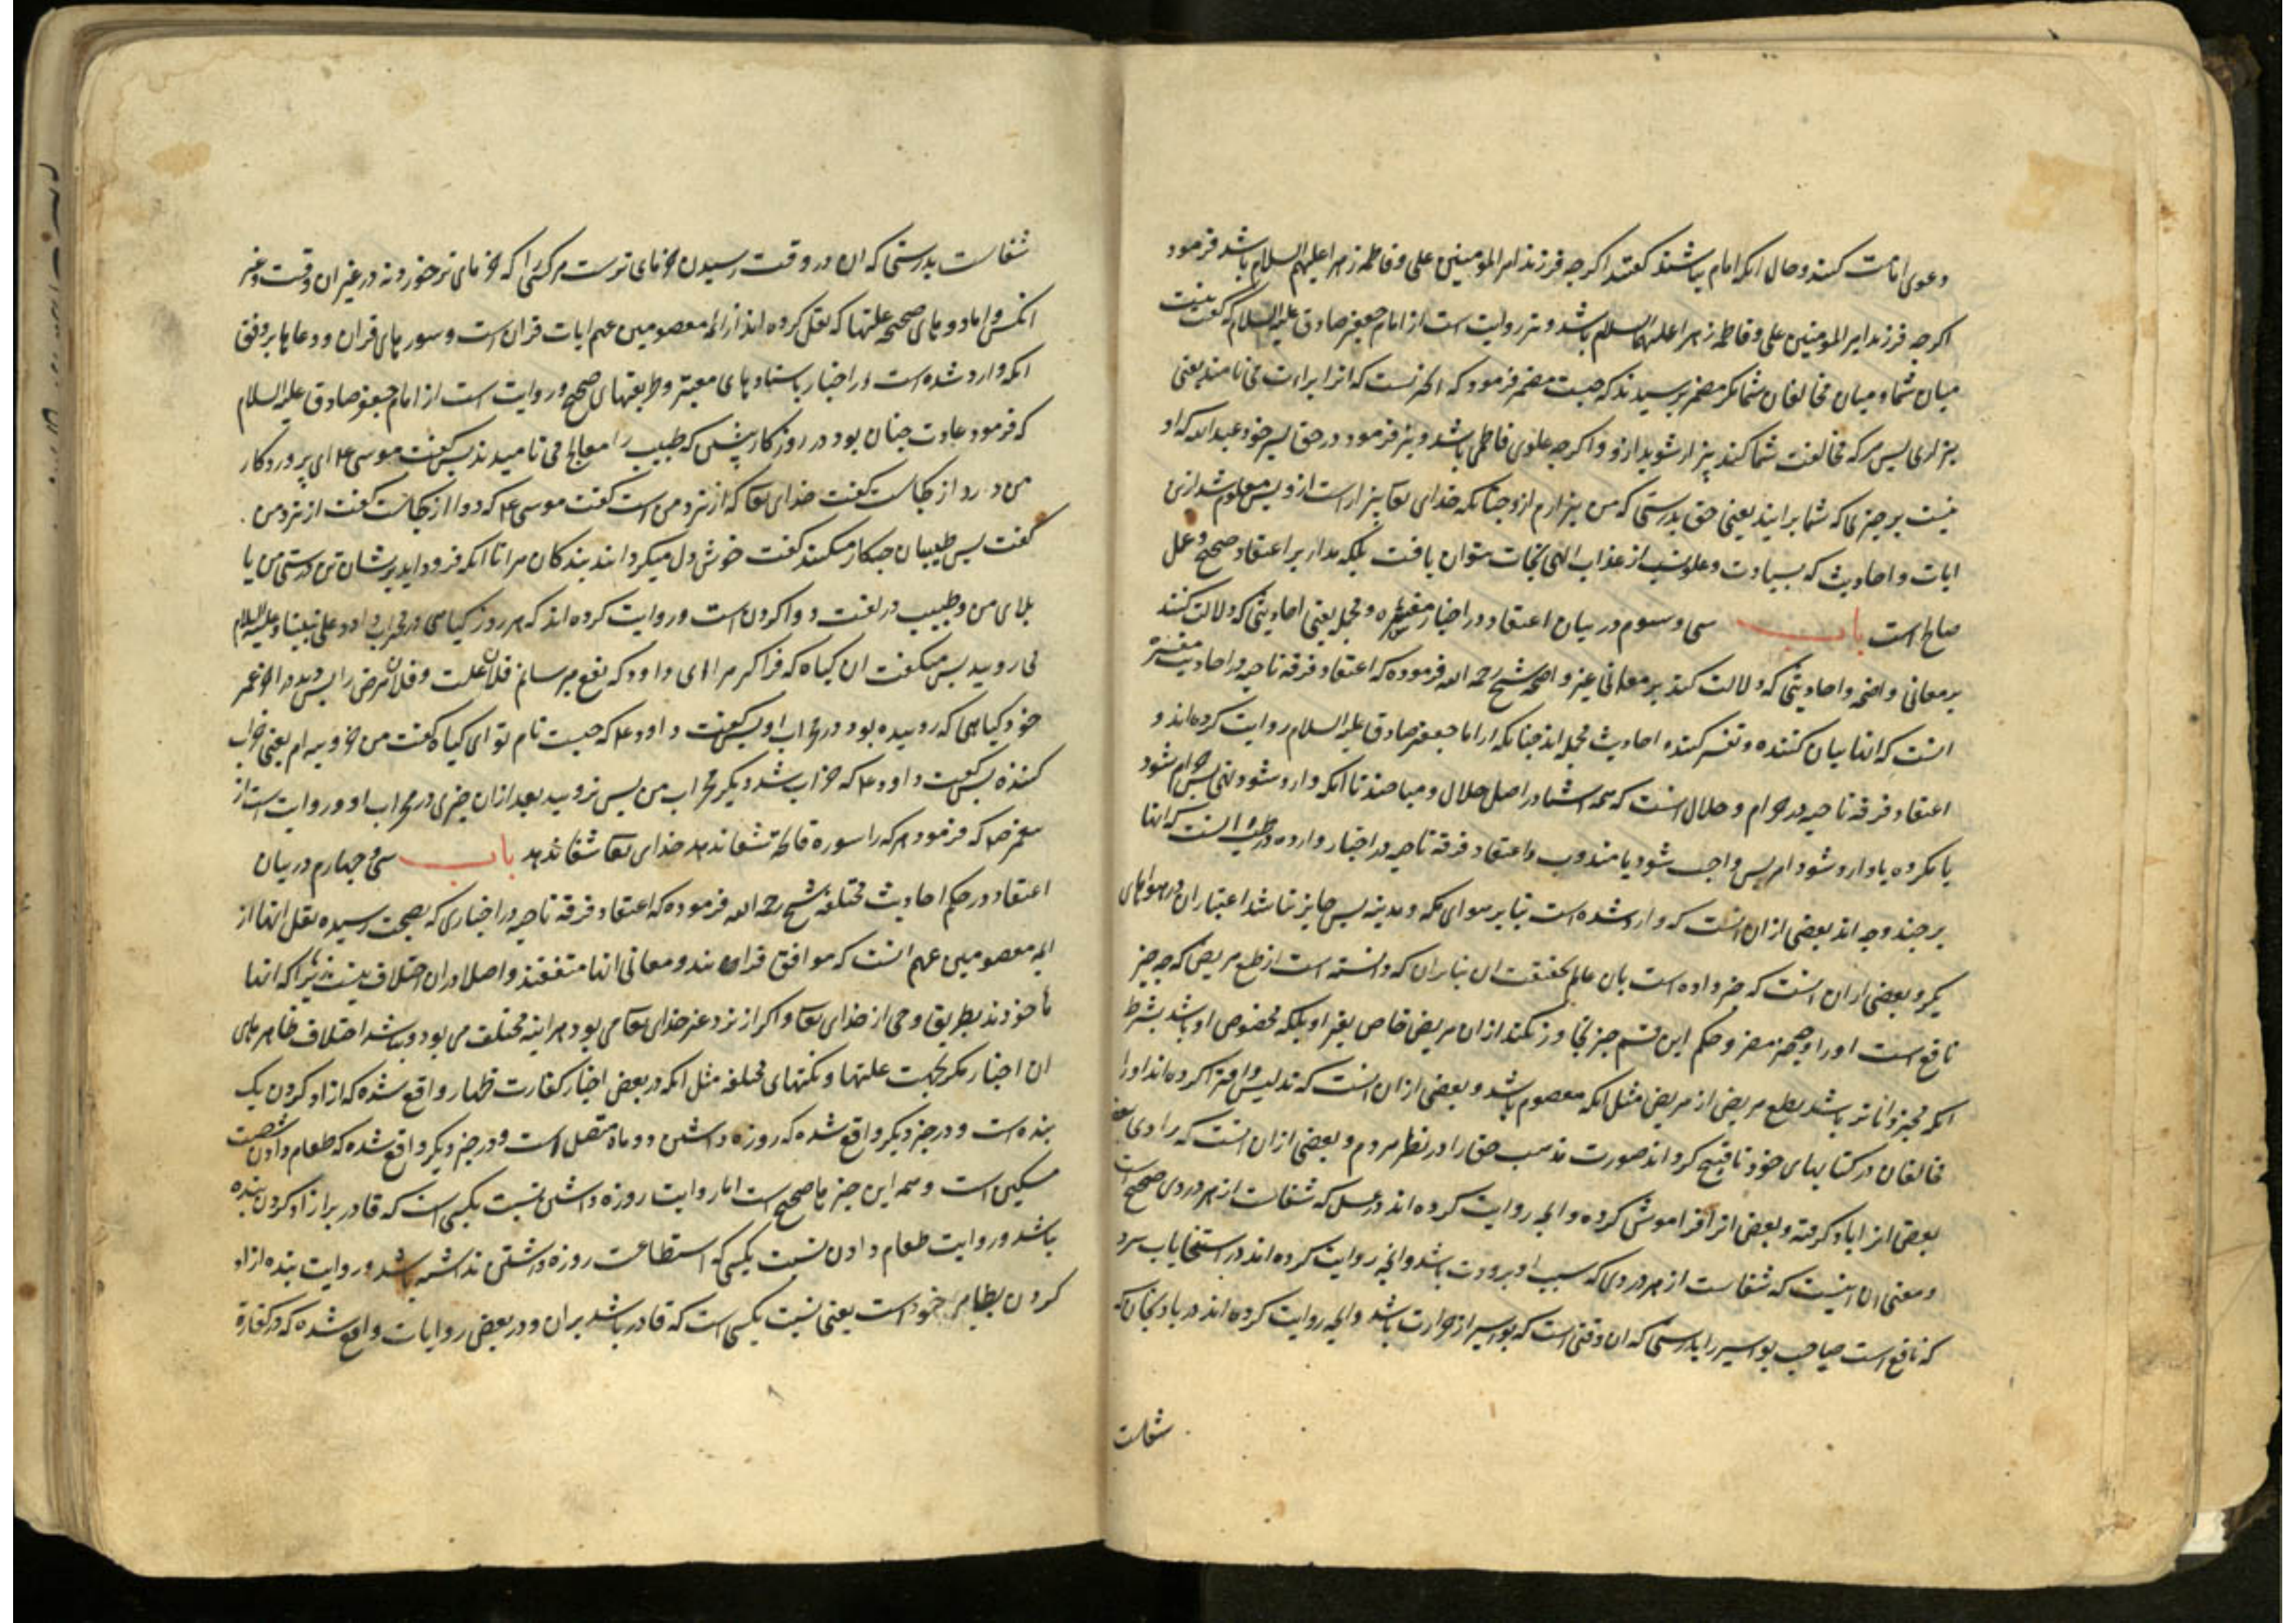 دعوی امامت کنند و حال آنکه امام نباشند گفتند اگرچه فرزند امیرالمومنین علی و فاطمه زهرا علیهم السلام باشد فرمود
اگرچه فرزند امیر المومنین علی و فاطمه زهرا علیهما السلام باشد و نیز روایت است از امام جعفر صادق علیه السلام که گفت نیست
میان شما و میان مخالفان شما مگر مضمر پرسیدند که چیست مضمر فرمود که الخ نست که انرا براءت می نامند یعنی
بیزاری پس هرکه مخالفت شما کند بیزار شوید ازو و اگرچه علوی فاطمی باشد و نیز فرمود در حق پسر خود عبد الله که او
نیست بر چیزی که شما برانید یعنی حق بدرستی که من بیزارم ازو چنانکه خدای تعا بیزار است ازو پس معلوم شد ازین
ایات و احادیث که بسیادت و علو نسب از عذاب الهی نجات نتوان یافت بلکه مدار بر اعتقاد صحیح و عمل
صالح است باب سی و سوم در بیان اعتقاد در اخبار مفسره و مجمله یعنی احادیثی که دلالت کنند
بر معانی واضحه و احادیثی که دلالت کند بر معانی غیر واضحه شیخ رحمه الله فرموده که اعتقاد فرقه ناجیه در احادیث مفسره
انست که انها بیان کننده و تفسیر کننده احادیث مجمله اند چنانکه از امام جعفر صادق علیه السلام روایت کرده اند و
اعتقاد فرقه ناجیه در حرام و حلال انست که همه اشیا در اصل حلال و مباحند تا انکه وارد شود نهی پس حرام شود
یا مکروه یا وارد شود امر پس واجب شود یا مندوب و اعتقاد فرقه ناجیه در اخبار وارده در طب انست که انها
بر چند وجه اند بعضی ازان انست که وارد شده است بنا بر هوای مکه و مدینه پس جایز نباشد اعتبار ان در هواهای
دیگر و بعضی ازان انست که خبر داده است بان عالم بحقیقت ان بنابران که دانسته است از طبع مریض که چه چیز
نافع است اورا و چه چیز مضر و حکم این قسم چیز تجاوز نکند ازان مریض خاص بغیر او بلکه مخصوص او باشد بشرط
انکه مخبر داناتر باشد بطبع مریض از مریض مثل انکه معصوم باشد و بعضی ازان انست که تدلیس و افترا کرده اند اورا
مخالفان در کتابهای خود تا قبیح کرداند صورت مذهب حق را در نظر مردم و بعضی ازان انست که راوی
بعضی انرا یاد گرفته و بعضی انرا فراموش کرده و انچه روایت کرده اند در عسل که شفاست از هر دردی صحیح است
و معنی ان اینست که شفاست از هر دردی که سبب او برودت باشد و انچه روایت کرده اند در استنجا باب سرد
که نافع است صاحب بواسیر را بدرستی که ان وقتی است که بواسیر از حرارت باشد و انچه روایت کرده اند در بادنجان که
شفاست
شفاست بدرستی که ان در وقت رسیدن خرمای ترست مر کسی را که خرمای تر خورد نه در غیر ان وقت و غیر
انکس و اما دوهای صحیحه علتها که نقل کرده اند از ائمه معصومین عم ایات قران است و سورهای قران و دعاها بر وفق
انکه وارد شده است در اخبار باسنادهای معتبر و طریقتهای صحیح و روایت است از امام جعفر صادق علیه السلام
که فرمود عادت چنان بود در روزکار پیش که طبیب را معالج می نامیدند پس گفت موسی ع م ای پروردکار
من درد از کجاست گفت خدای تعا که از نزد من است گفت موسی ع م که دوا از کجاست گفت از نزد من
گفت پس طبیبان چکار میکنند گفت خوش دل میکردانند بندکان مرا تا انکه فرود اید بر شان تن درستی من یا
بلای من و طبیب در لغت دوا کردن است و روایت کرده اند که هر روز کیاهی در محراب داود علی نبینا و علیه السلام
می رویید پس میکفت ان کیاه که فراکیر مرا ای داود که نفع میرسانم فلان علت و فلان مرض را پس دید در اخر عمر
خود کیاهی که روییده بود در محراب او پس گفت داود ع م که چیست نام تو ای کیاه گفت من خروبیه ام یعنی خراب
کننده پس گفت داود ع م که خراب شد دیگر محراب من پس نرویید بعد ازان چیزی در محراب او و روایت است از
پیغمبر ص م که فرمود هر که را سوره فاتحه شفا ندهد خدای تعا شفا ندهد باب سی و چهارم در بیان
اعتقاد در حکم احادیث مختلفه شیخ رحمه الله فرموده که اعتقاد فرقه ناجیه در اخباری که بصحت رسیده نقل انها از
ایمه معصومین عم انست که موافق قران‌ند و معانی انها متفقند و اصلا دران اختلاف نیست زیرا که انها
ماخوذند بطریق وحی از خدای تعا و اکر از نزد غیر خدای تعا می بود هراینه مختلف می بود و نباشد اختلاف ظاهرهای
ان اخبار مگر بجهت علتها و نکتهای مختلفه مثل انکه در بعض اخبار کفارت ظهار واقع شده که ازاد کردن یک
بنده است و در خبر دیکر واقع شده که روزه داشتن دو ماه متصل است و در خبر دیکر واقع شده که طعام دادن شصت
مسکین است و همه این خبرها صحیح است اما روایت روزه داشتن نسبت بکسی است که قادر بر ازاد کردن بنده
باشد و روایت طعام دادن نسبت بکسی که استطاعت روزه داشتن نداشته باشد و روایت بنده ازاد
کردن بظاهر خود است یعنی نسبت بکسی است که قادر باشد بران و در بعض روایات واقع شده که در کفارة